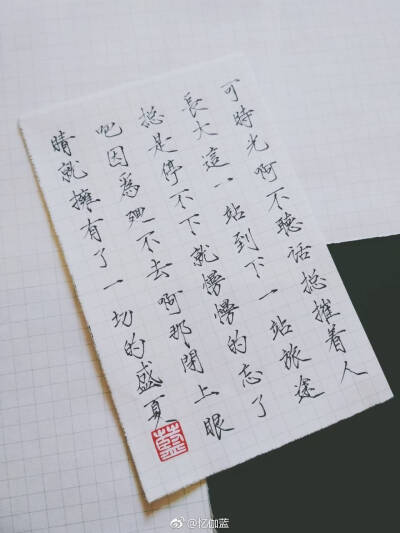 可時光啊不聽話捴摧着人
長大這一站到下一站旅途
捴是停不下就慢慢的忘了
吧因爲廻不去啊那閉上眼
睛就擁有了一切的盛夏
@忆伽蓝